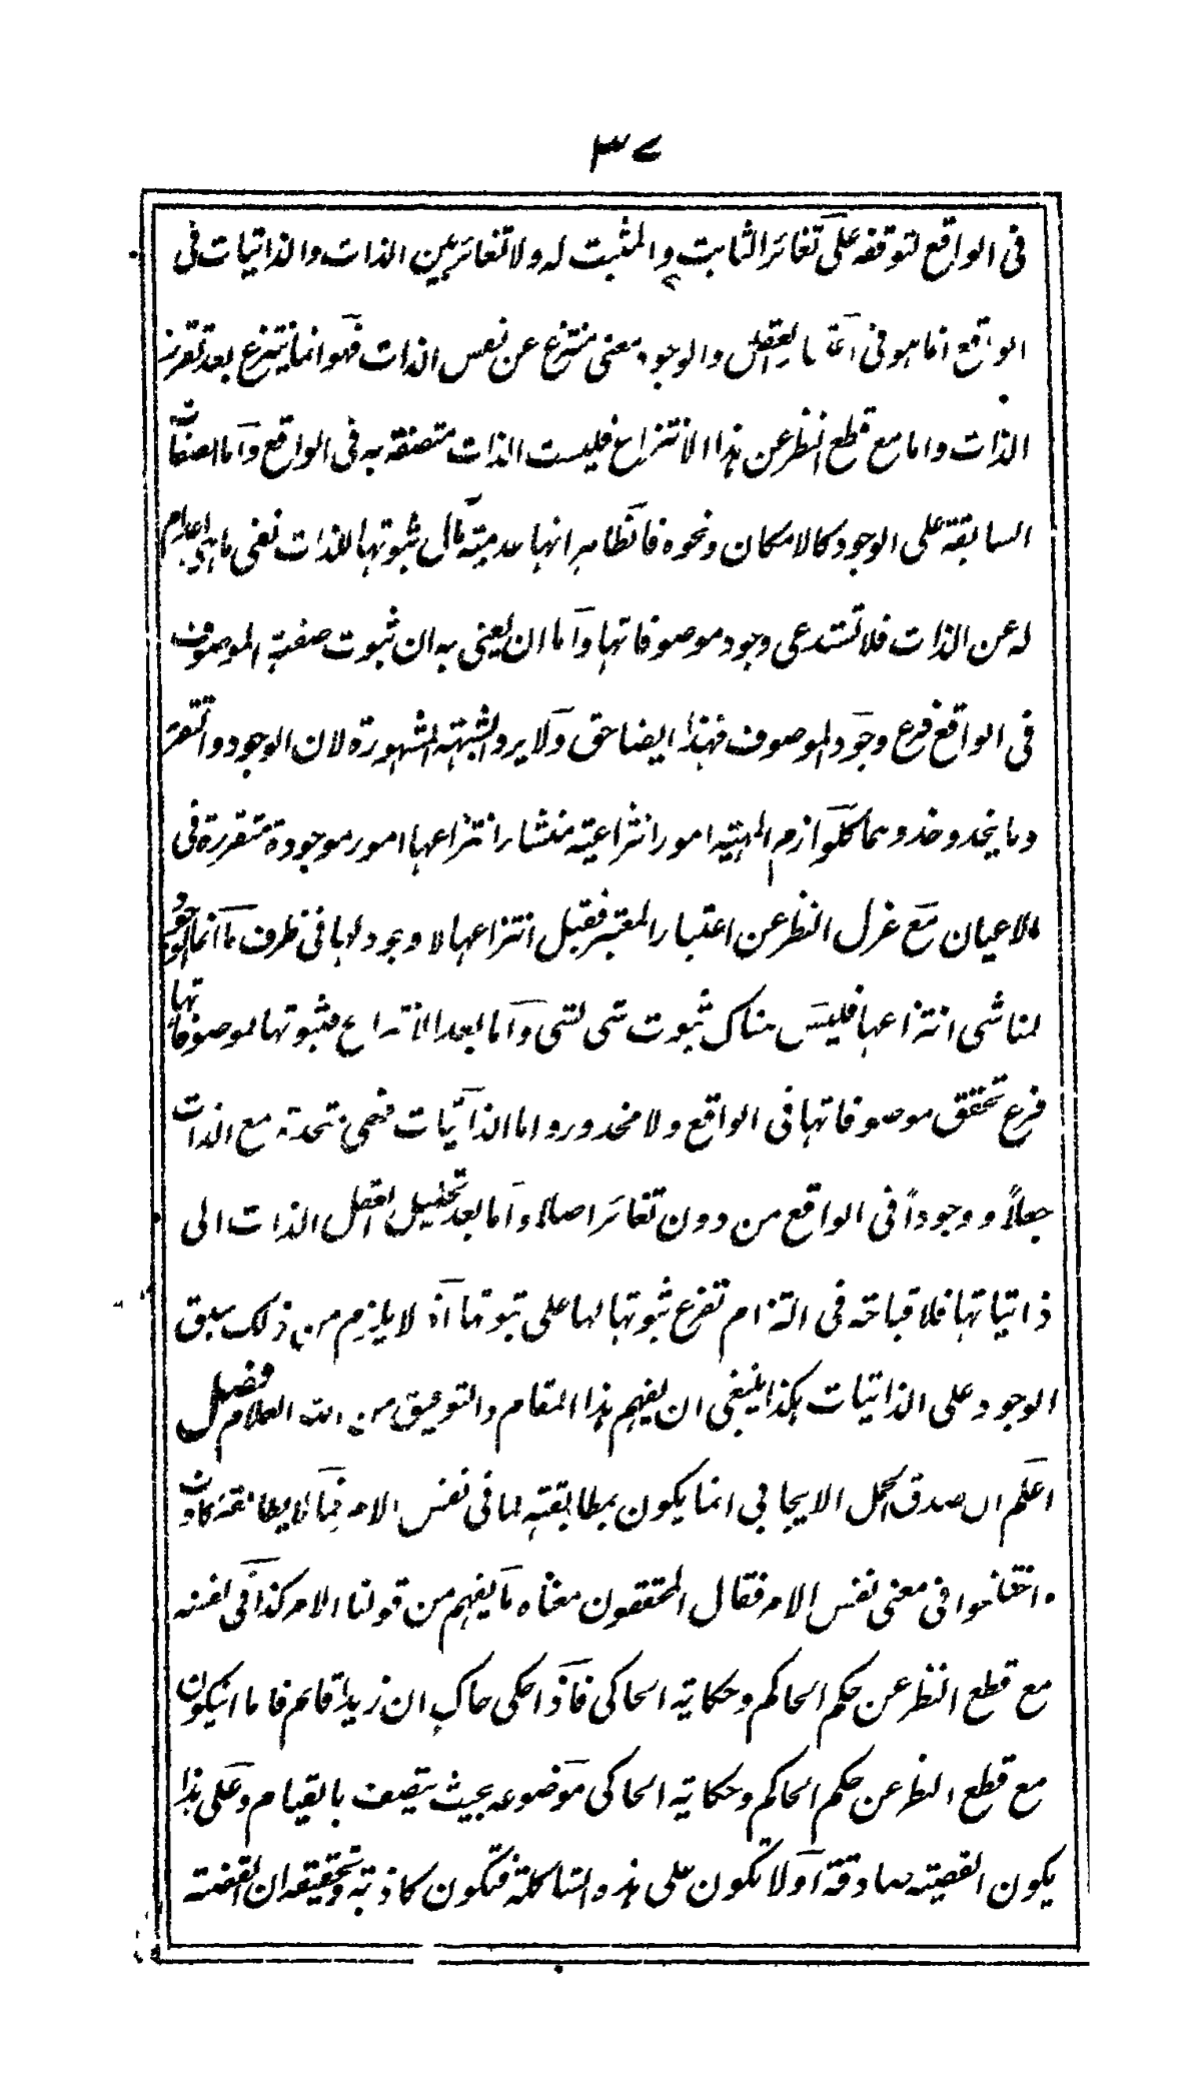 ٣٧
فى الواقع لتوقفه على تغائر الثابت والمثبت له ولا تغائر بين الذات والذاتيات فى
الواقع انما هو فى العقل والوجود معنى منتزع عن نفس الذات فهو انما ينتزع بعد تقرر
الذات واما مع قطع النظر عن هذا الانتزاع فليست الذات متصفة به فى الواقع واما الصفات
السابقة على الوجود كالامكان ونحوه فالظاهر انها عدمية مآل ثبوتها للذات نفى ما هى اعدام
له عن الذات فلا تستدعى وجود موصوفاتها واما ان يعنى به ان ثبوت صفة الموصوف
فى الواقع فرع وجود الموصوف فهذا ايضا حق ولا يرد الشبهة المشهورة لان الوجود والتقرر
وما يحذو حذوهما كلوازم المهية امور انتزاعية منشأ انتزاعها امور موجودة متقررة فى
الاعيان مع عزل النظر عن اعتبار المعتبر فقبل انتزاعها لا وجود لها فى ظرف ما انما الوجود
لمناشى انتزاعها فليس هناك ثبوت شى لشى واما بعد الانتزاع فثبوتها لموصوفاتها
فرع تحقق موصوفاتها فى الواقع ولا محذور واما الذاتيات فهى متحدة مع الذات
جعلاً ووجوداً فى الواقع من دون تغائر اصلا واما بعد تحليل العقل الذات الى
ذاتياتها فلا قباحة فى التزام تفرع ثبوتها لها على ثبوتها اذ لا يلزم من ذلك سبق
الوجود على الذاتيات هكذا ينبغى ان يفهم هذا المقام والتوفيق من الله العلام فصل
اعلم ان صدق الحمل الايجابى انما يكون بمطابقته لما فى نفس الامر فما لا يطابقه كاذب
واختلفوا فى معنى نفس الامر فقال المحققون معناه ما يفهم من قولنا الامر كذا فى نفسه
مع قطع النظر عن حكم الحاكم وحكاية الحاكى فاذا حكى حاك ان زيدا قائم فاما ان يكون
مع قطع النظر عن حكم الحاكم وحكاية الحاكى موضوعه بحيث يتصف بالقيام وعلى هذا
يكون القضية صادقة او لا تكون على هذه الشاكلة فتكون كاذبة وتحقيقه ان القضية